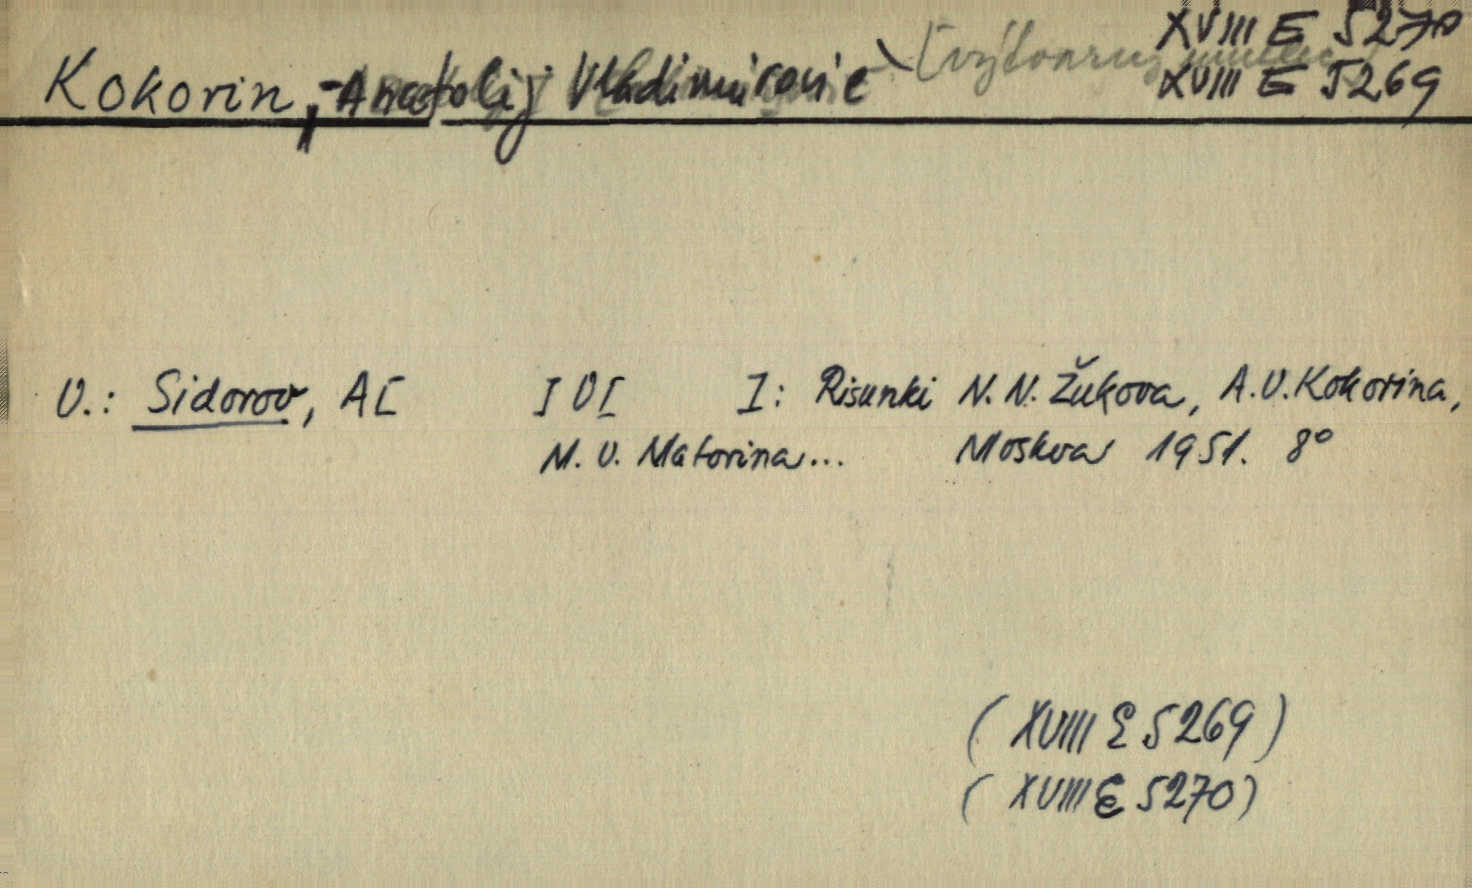 XVIII E 5270
Kokorin, Anatolij Vladimirovič [výtvarný umělec]
XVIII E 5269
V.: Sidorov, A[ ] V[ ] I: Risunki N. N. Žukova, A. V. Kokorina,
M. V. Matorina... Moskva 1951. 8°
(XVIII E 5269)
(XVIII E 5270)